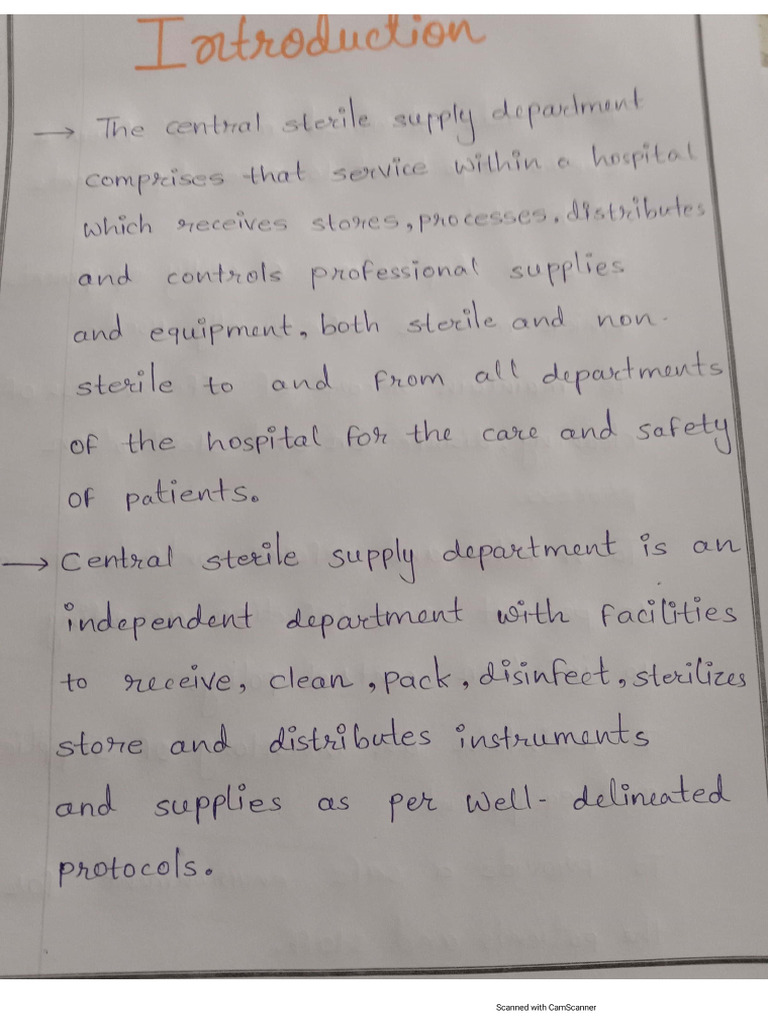 Introduction
→ The central sterile supply department
comprises that service within a hospital
which receives stores, processes, distributes
and controls professional supplies
and equipment, both sterile and non-
sterile to and from all departments
of the hospital for the care and safety
of patients.
→ Central sterile supply department is an
independent department with facilities
to receive, clean, pack, disinfect, sterilizes
store and distributes instruments
and supplies as per well-delineated
protocols.
Scanned with CamScanner